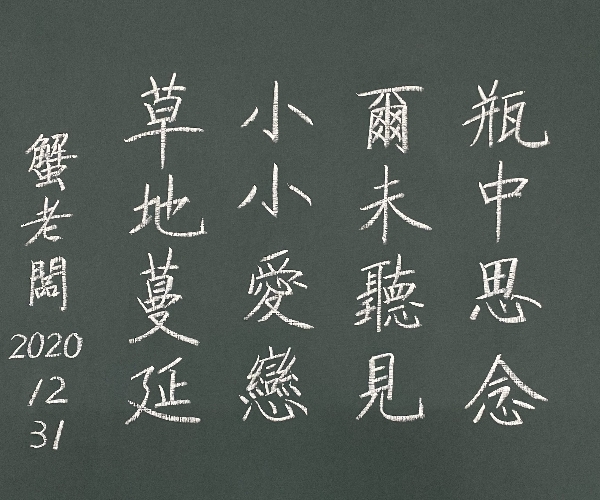 瓶中思念
爾未聽見
小小愛戀
草地蔓延
蟹老闆
2020
12
31